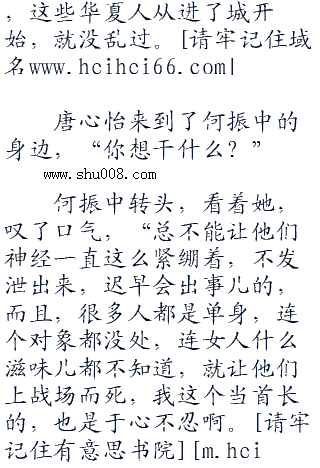 ，这些华夏人从进了城开
始，就没乱过。[请牢记住域
名www.hcihci66.com|
唐心怡来到了何振中的
身边，“你想干什么？”
www.shu008.com
何振中转头，看着她，
叹了口气，“总不能让他们
神经一直这么紧绷着，不发
泄出来，迟早会出事儿的，
而且，很多人都是单身，连
个对象都没处，连女人什么
滋味儿都不知道，就让他们
上战场而死，我这个当首长
的，也是于心不忍啊。[请牢
记住有意思书院][m.hci